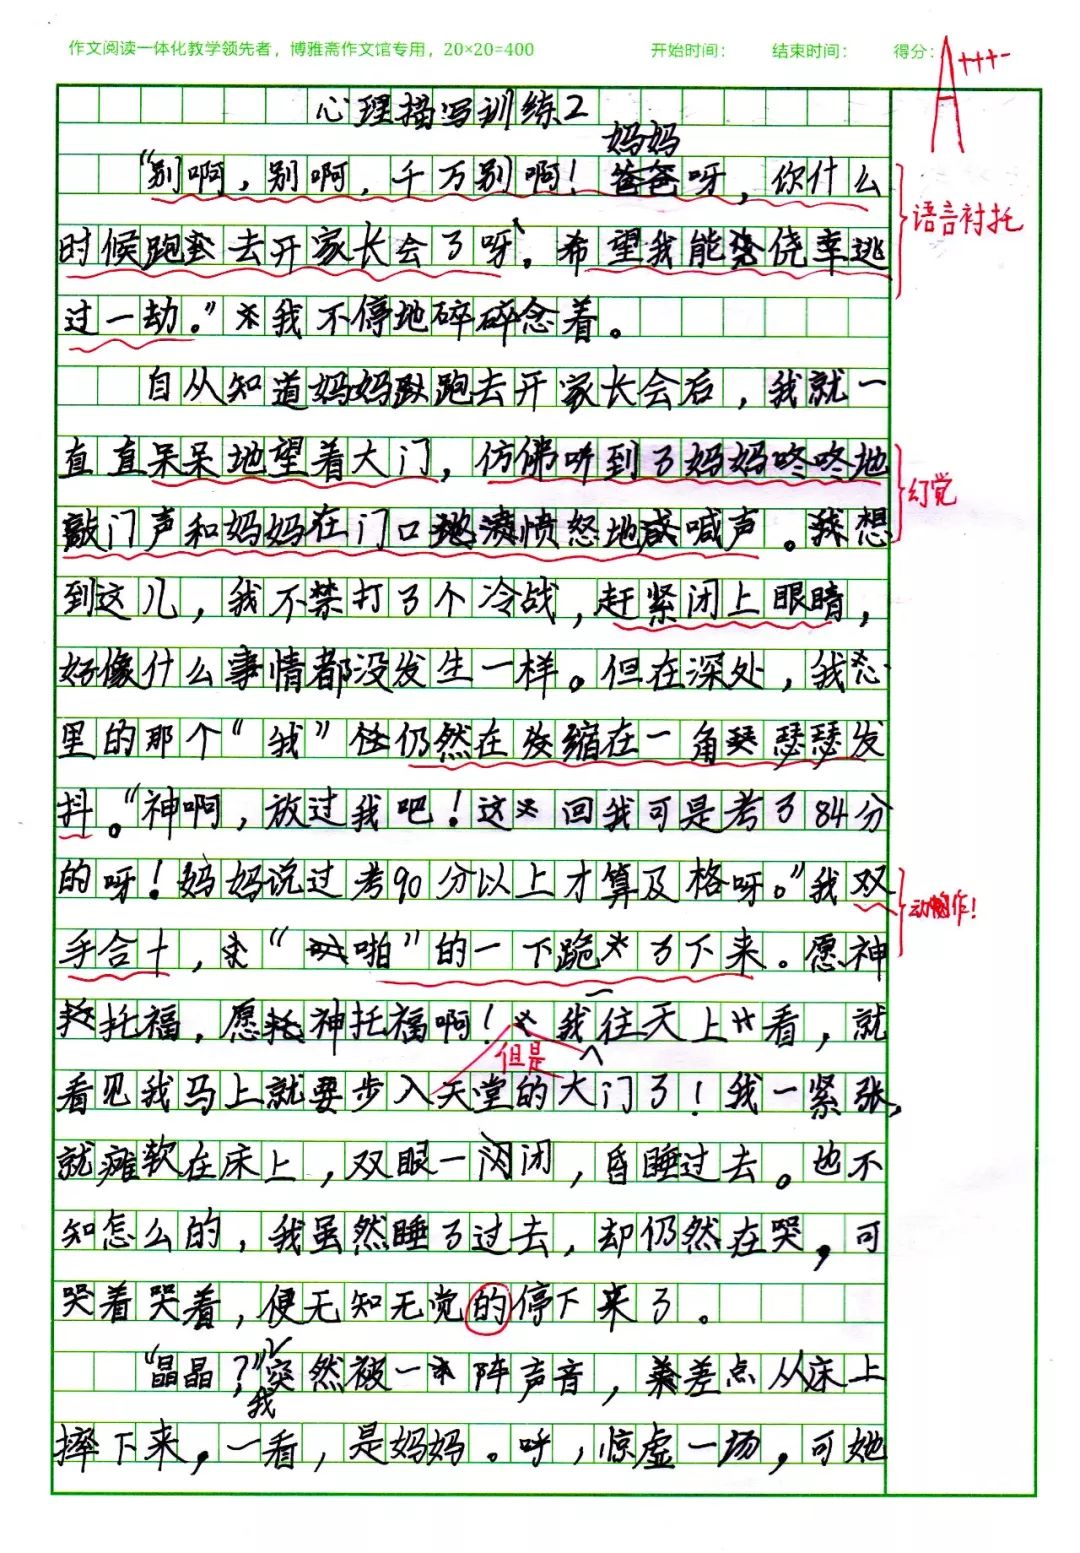 作文阅读一体化教学领先者，博雅斋作文馆专用，20×20=400 开始时间： 结束时间： 得分：
A+++-
心理描写训练2
妈妈
“别啊，别啊，千万别啊！爸爸呀，你什么
语言衬托
时候跑去开家长会了呀。希望我能侥幸逃
过一劫。”我不停地碎碎念着。
自从知道妈妈跑去开家长会后，我就一
直直呆呆地望着大门，仿佛听到了妈妈咚咚地
幻觉
敲门声和妈妈在门口愤怒地喊声。我想
到这儿，我不禁打了个冷战，赶紧闭上眼睛，
好像什么事情都没发生一样。但在深处，我心
里的那个“我”仍仍然在缩在一角瑟瑟发
抖。“神啊，放过我吧！这回我可是考了84分
的呀！妈妈说过考90分以上才算及格呀。”我双
动作！
手合十，“啪”的一下跪了下来。愿神
托福，愿神托福啊！我往天上一看，就
但是
看见我马上就要步入天堂的大门了！我一紧张，
就瘫软在床上，双眼一闭，昏睡过去。也不
知怎么的，我虽然睡了过去，却仍然在哭，可
哭着哭着，便无知无觉的停下来了。
“晶晶？”突然被一阵声音，差点从床上
我
摔下来，一看，是妈妈。呼，惊虚一场，可她